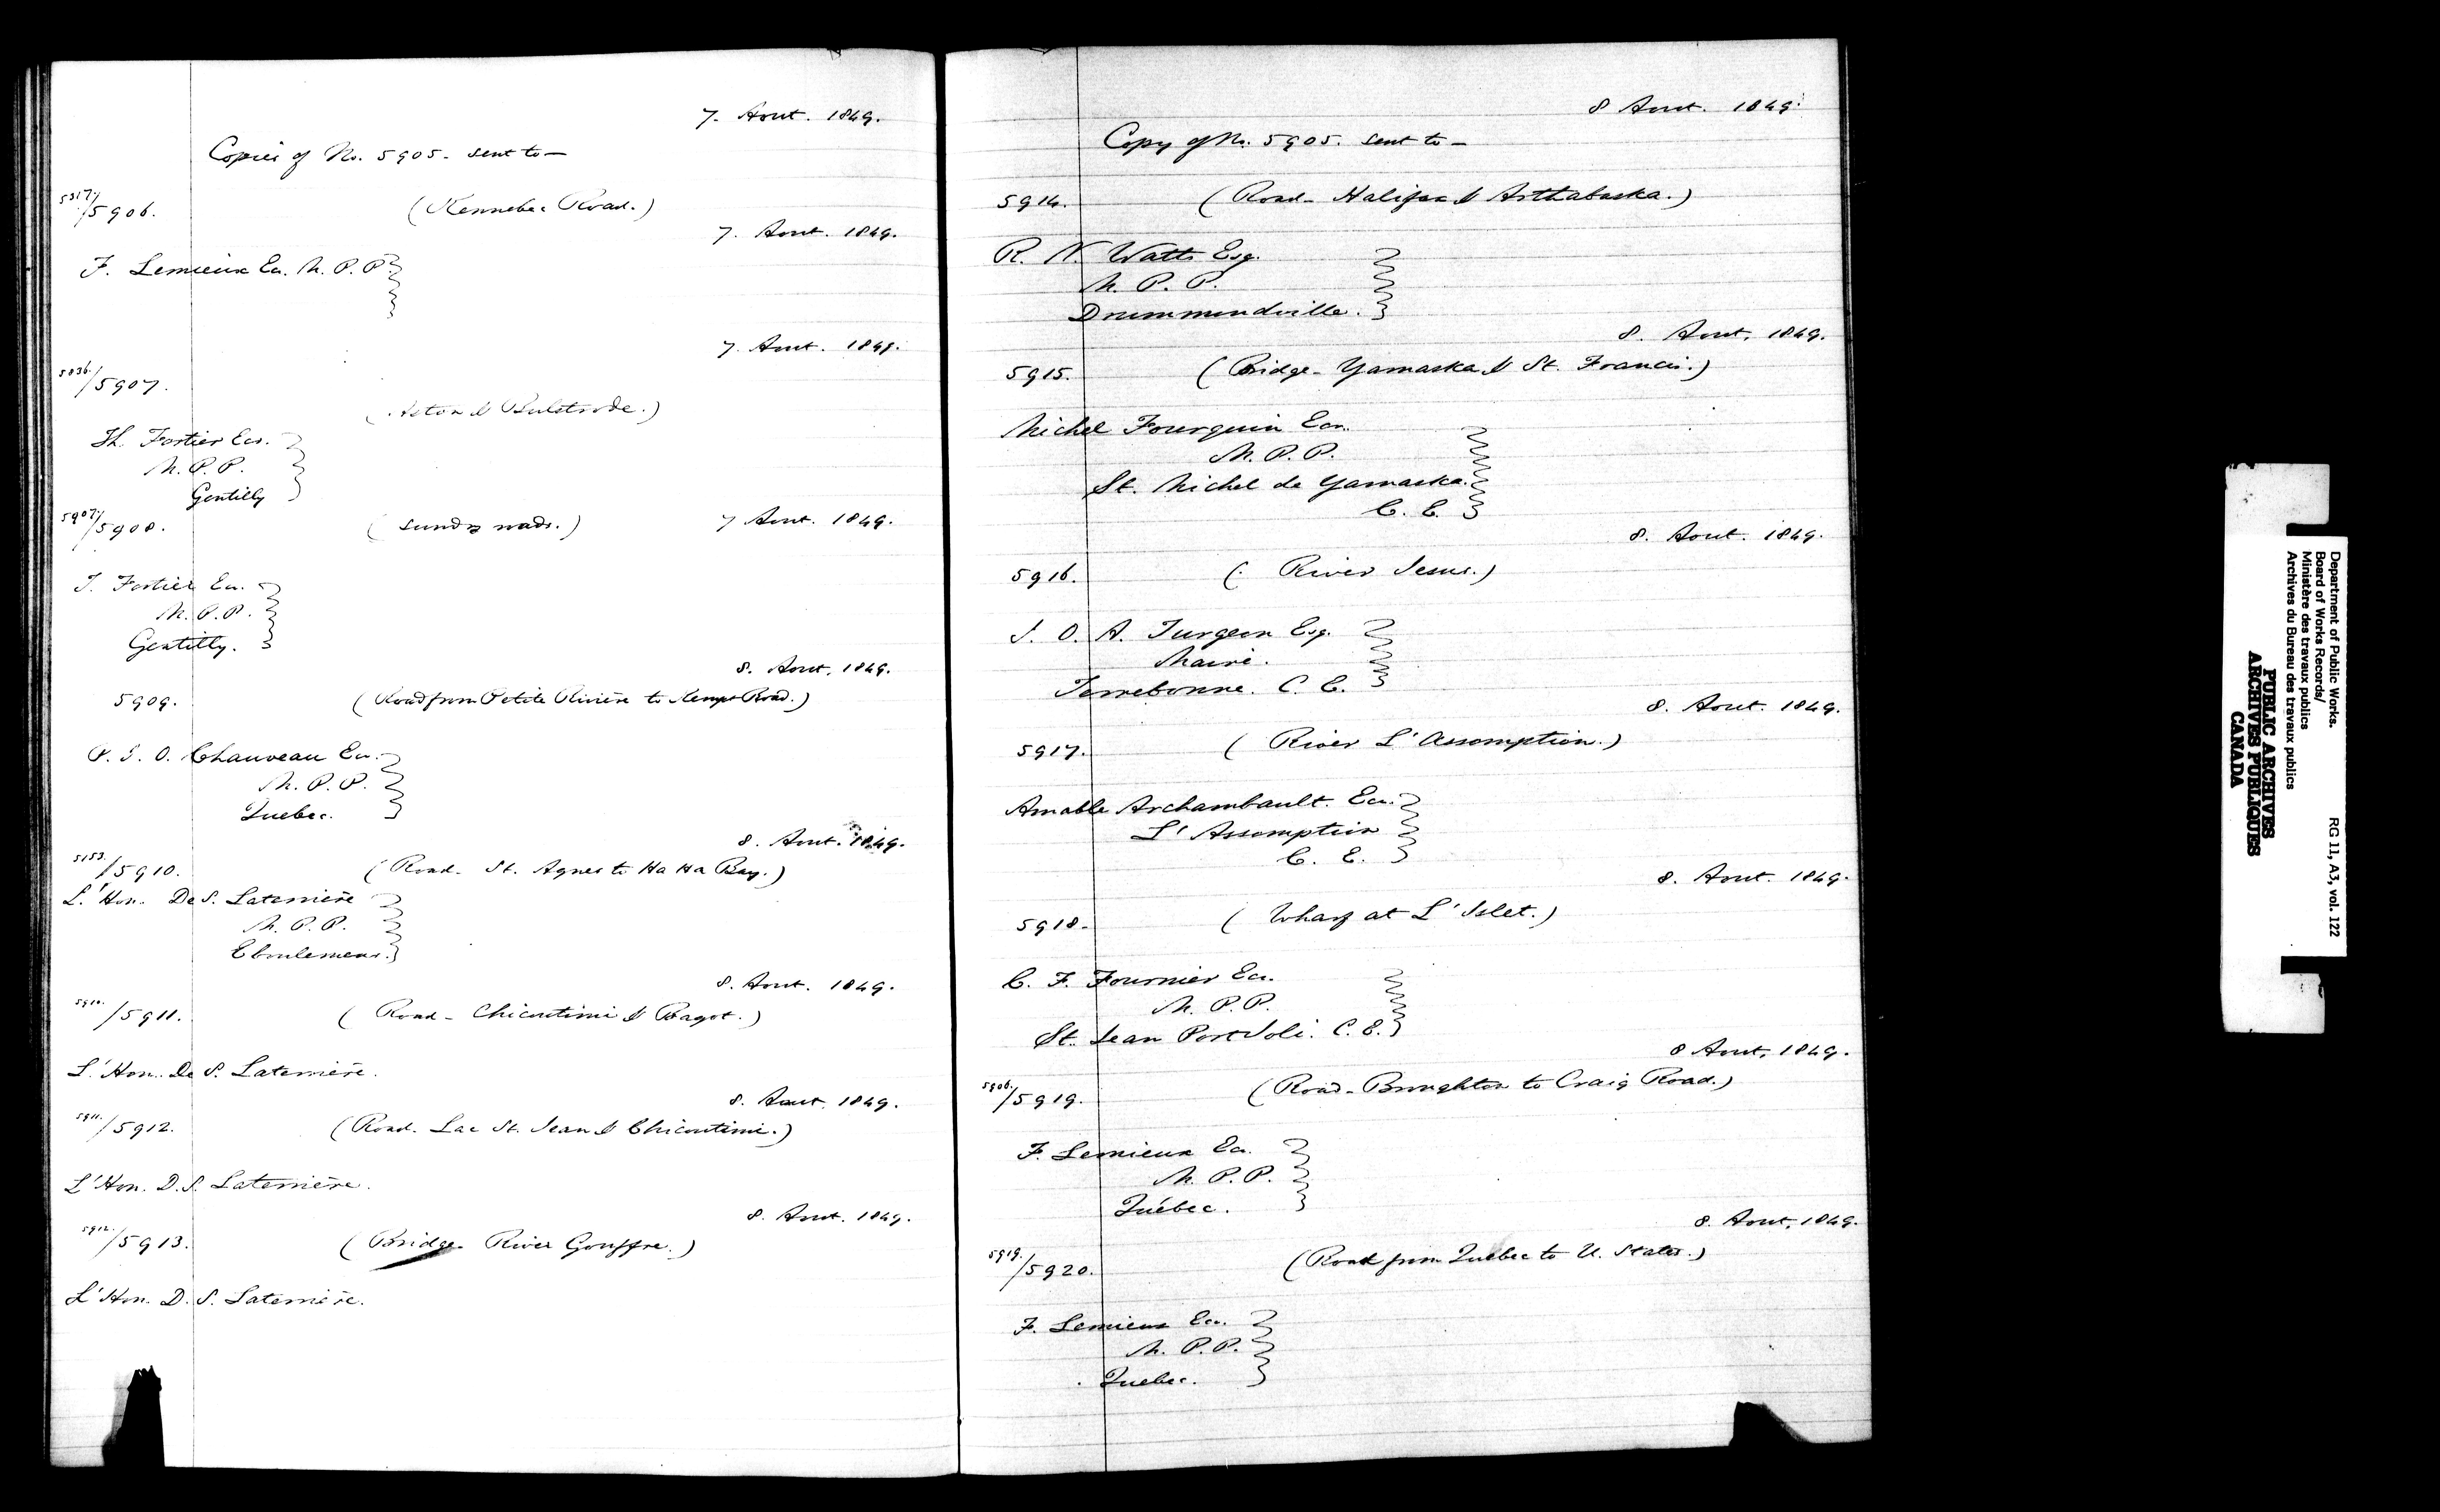 7. Aout. 1849.
Copies of No. 5905. sent to —
5317./5906. (Kennebec Road.)
7. Aout. 1849.
F. Lemieux Ecr. M. P. P.
7. Aout. 1849.
5036./5907.
(Acton & Bulstrode.)
Th. Fortier Ecr.
M. P. P.
Gentilly
5907./5908. (Sundry roads.) 7 Aout. 1849.
T. Fortier Ecr.
M. P. P.
Gentilly.
8. Aout. 1849.
5909. (Road from Petite Rivière to Kempt Road.)
P. J. O. Chauveau Ecr.
M. P. P.
Quebec.
8. Aout. 1849.
5153./5910. (Road - St. Agnes to Ha Ha Bay.)
L'Hon. De S. Laterrière
M. P. P.
Eboulemens.
8. Aout. 1849.
5910./5911. (Road - Chicoutimi & Bagot.)
L'Hon. De S. Laterrière.
8. Aout. 1849.
5911./5912. (Road. Lac St. Jean & Chicoutimi.)
L'Hon. D. S. Laterrière.
8. Aout. 1849.
5912./5913. (Bridge - River Gouffre.)
L'Hon. D. S. Laterrière.
8 Aout. 1849.
Copy of No. 5905. sent to —
5914. (Road - Halifax & Arthabaska.)
R. N. Watts Esq.
M. P. P.
Drummondville.
8. Aout. 1849.
5915. (Bridge - Yamaska & St. Francis.)
Michel Fourquin Ecr.
M. P. P.
St. Michel de Yamaska.
C. E.
8. Aout. 1849.
5916. (River Jesus.)
J. O. A. Turgeon Esq.
Maire.
Terrebonne. C. E.
8. Aout. 1849.
5917. (River L'Assomption.)
Amable Archambault. Ecr.
L'Assomption
C. E.
8. Aout. 1849.
5918. (Wharf at L'Islet.)
C. F. Fournier Ecr.
M. P. P.
St. Jean Port Joli. C. E.
8 Aout. 1849.
5906./5919. (Road - Broughton to Craig Road.)
F. Lemieux Ecr.
M. P. P.
Québec.
8. Aout, 1849.
5919./5920. (Road from Quebec to U. States.)
F. Lemieux Ecr.
M. P. P.
Quebec.
Department of Public Works. RG 11, A3, vol. 122
Board of Works Records/
Ministère des travaux publics
Archives du Bureau des travaux publics
PUBLIC ARCHIVES
ARCHIVES PUBLIQUES
CANADA